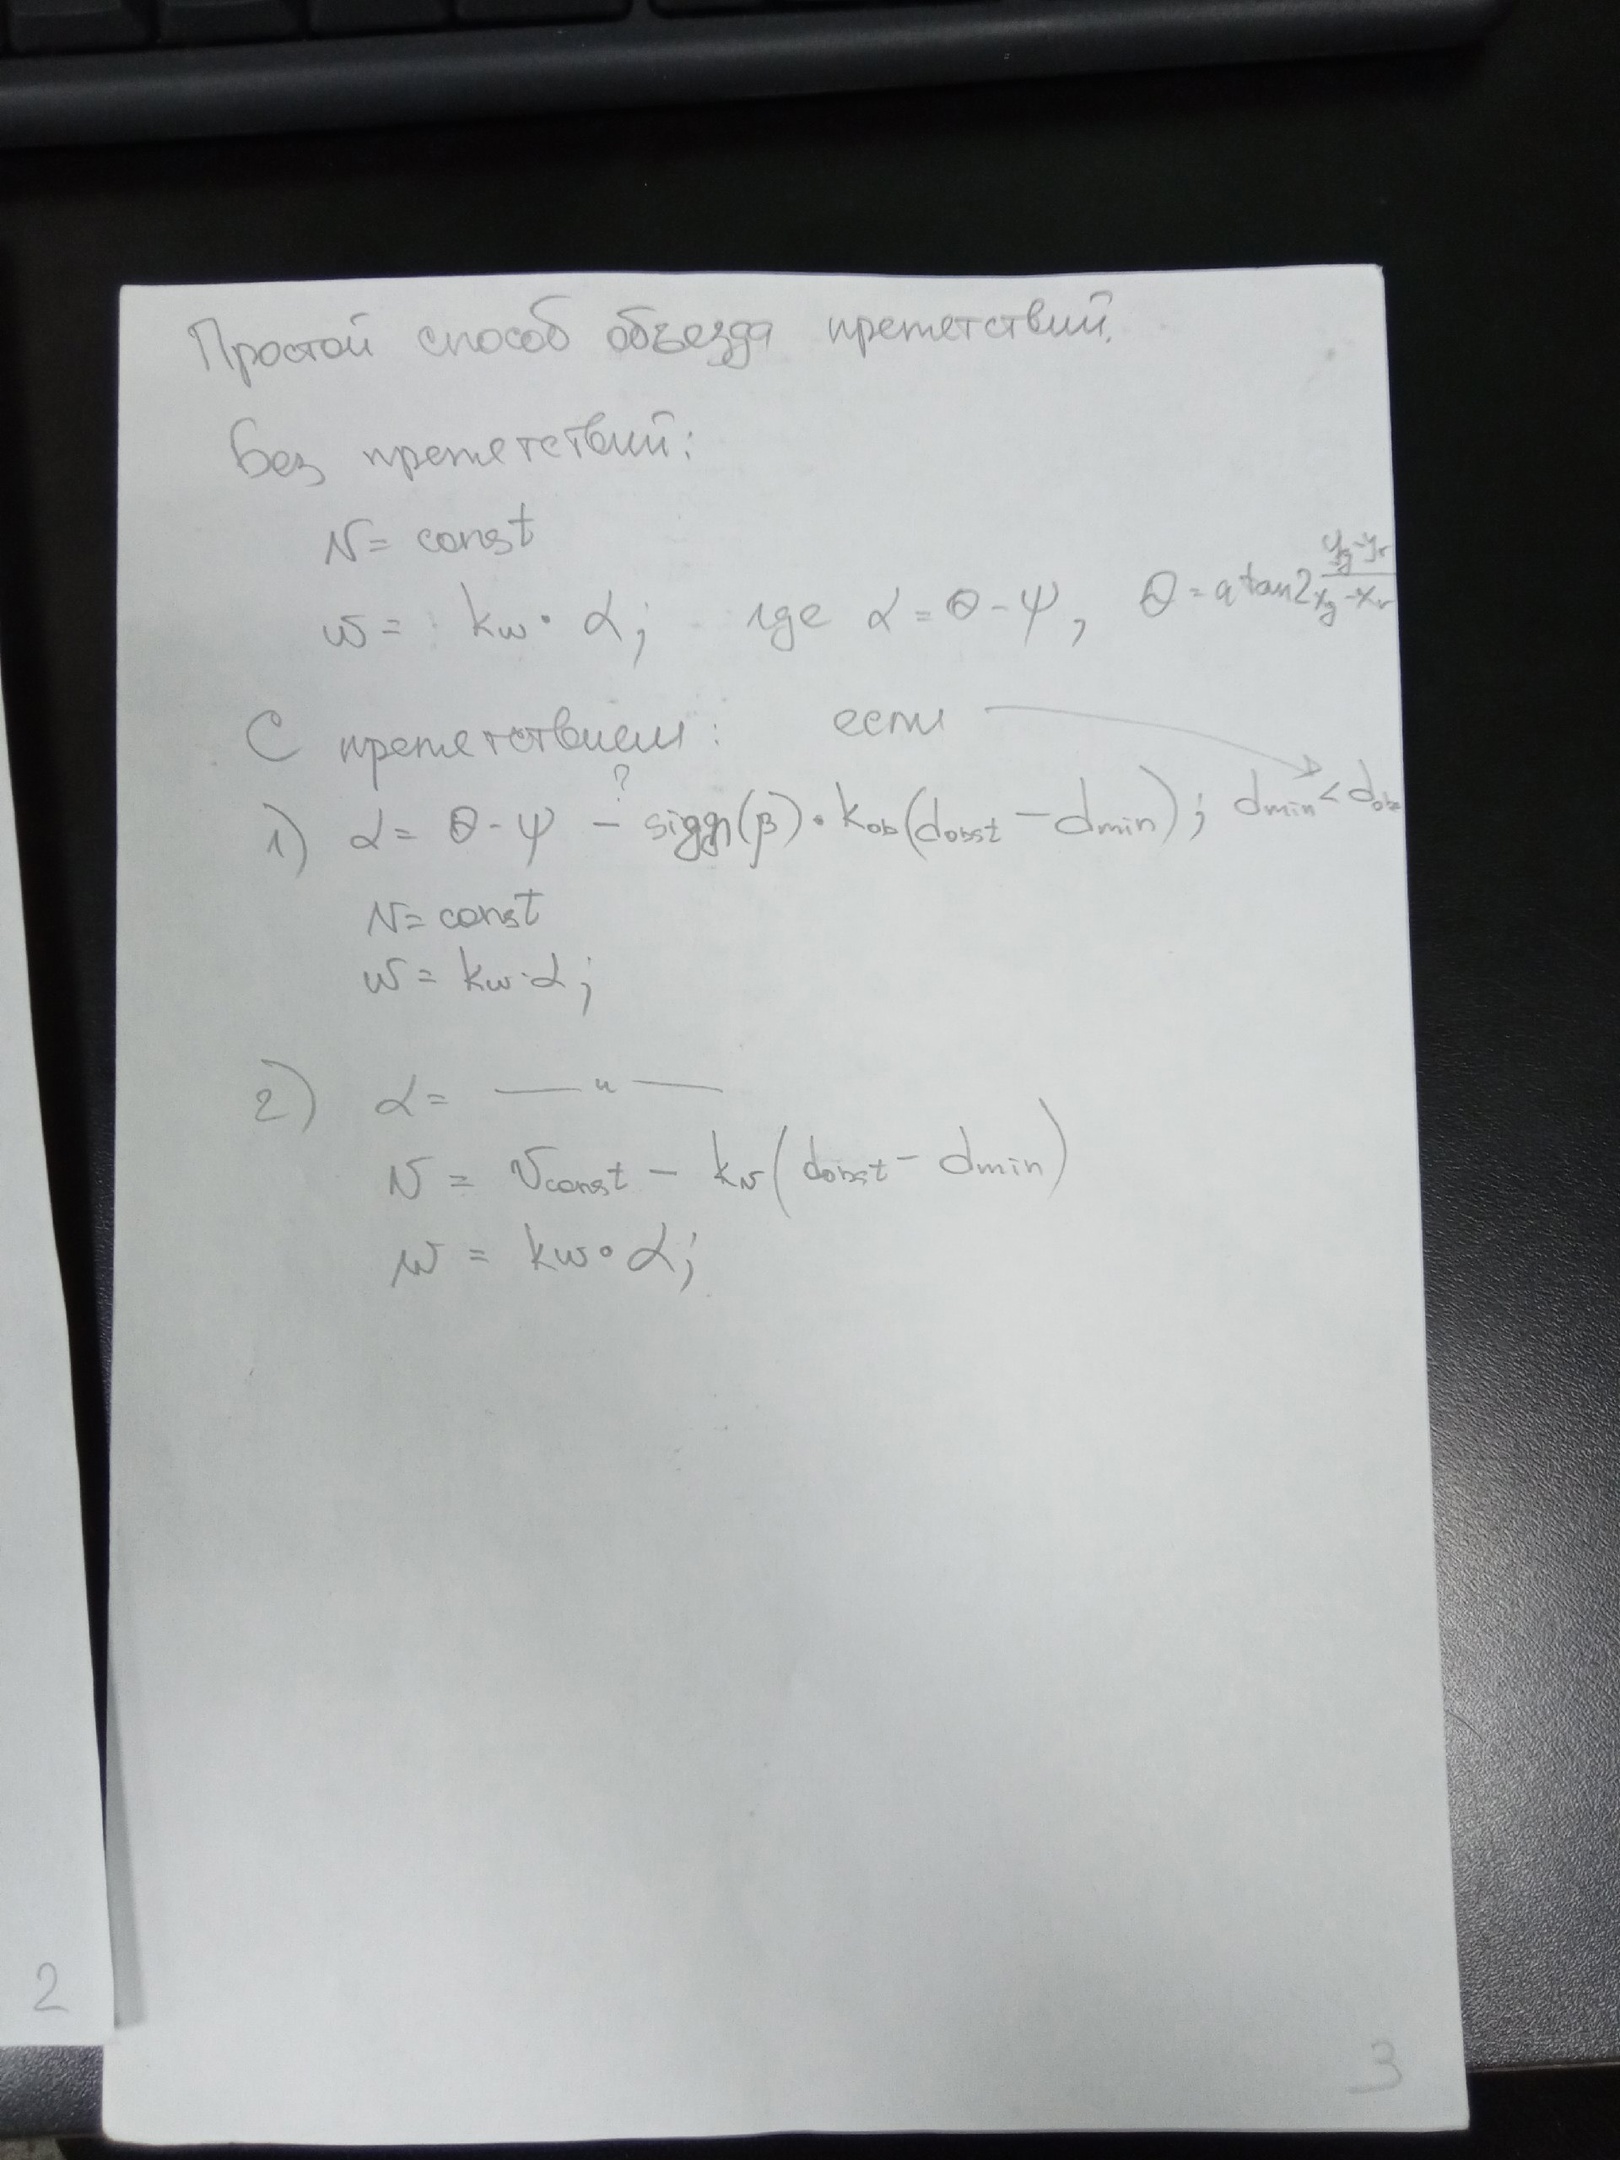 Простой способ объезда препятствий.
Без препятствий:
v = const
w = kw · α; где α = θ - ψ, θ = atan2 (yg - yr)/(xg - xr)
С препятствием: если
?
1) α = θ - ψ - sign(β) · kob(dobst - dmin); dmin < dob
v = const
w = kw · α;
2) α = —— " ——
v = vconst - kv(dobst - dmin)
w = kw · α;
2
3